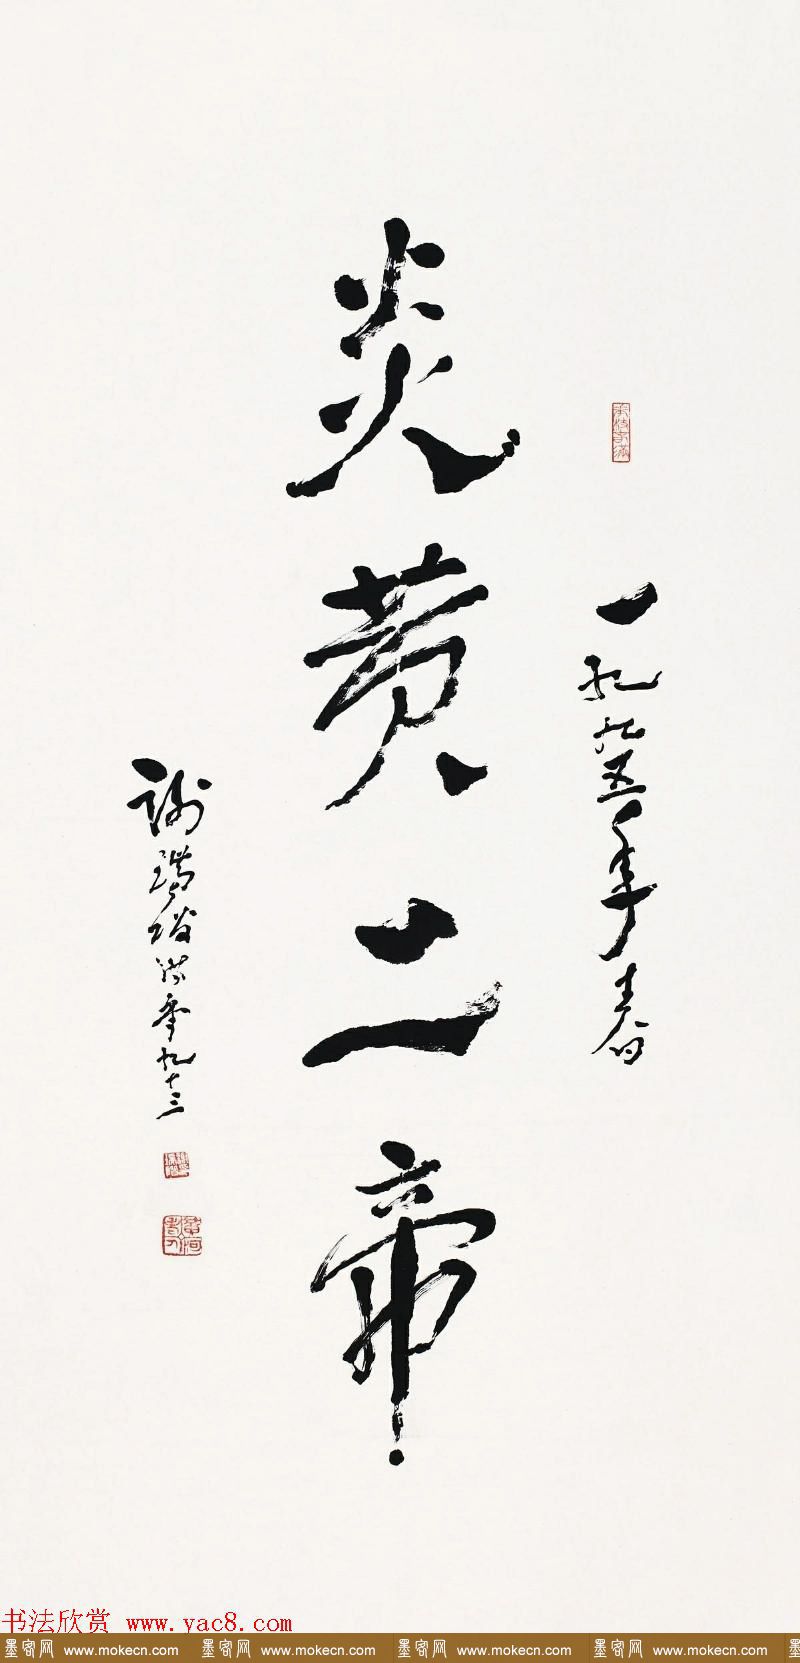 一九九五年春
炎黄二帝
謝瑞階 年九十三
书法欣赏 www.yac8.com
墨客网 www.mokecn.com 墨客网 www.mokecn.com 墨客网 www.mokecn.com 墨客网 www.mokecn.com